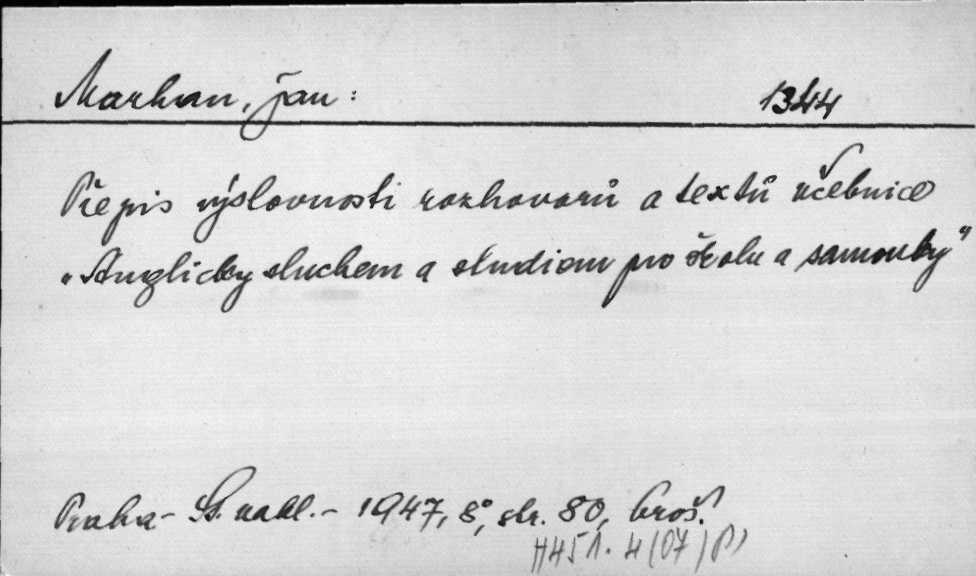 Markan, Jan: 1344
Přepis výslovnosti rozhovorů a textů učebnice
„Anglicky sluchem a studiem pro školu a samouky"
Praha - St. nakl. - 1947, 8°, str. 80, brož.
H451. 4(07)(P)